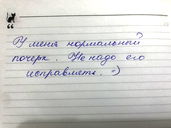 У меня нормальный
почерк. Не надо его
исправлять. =)